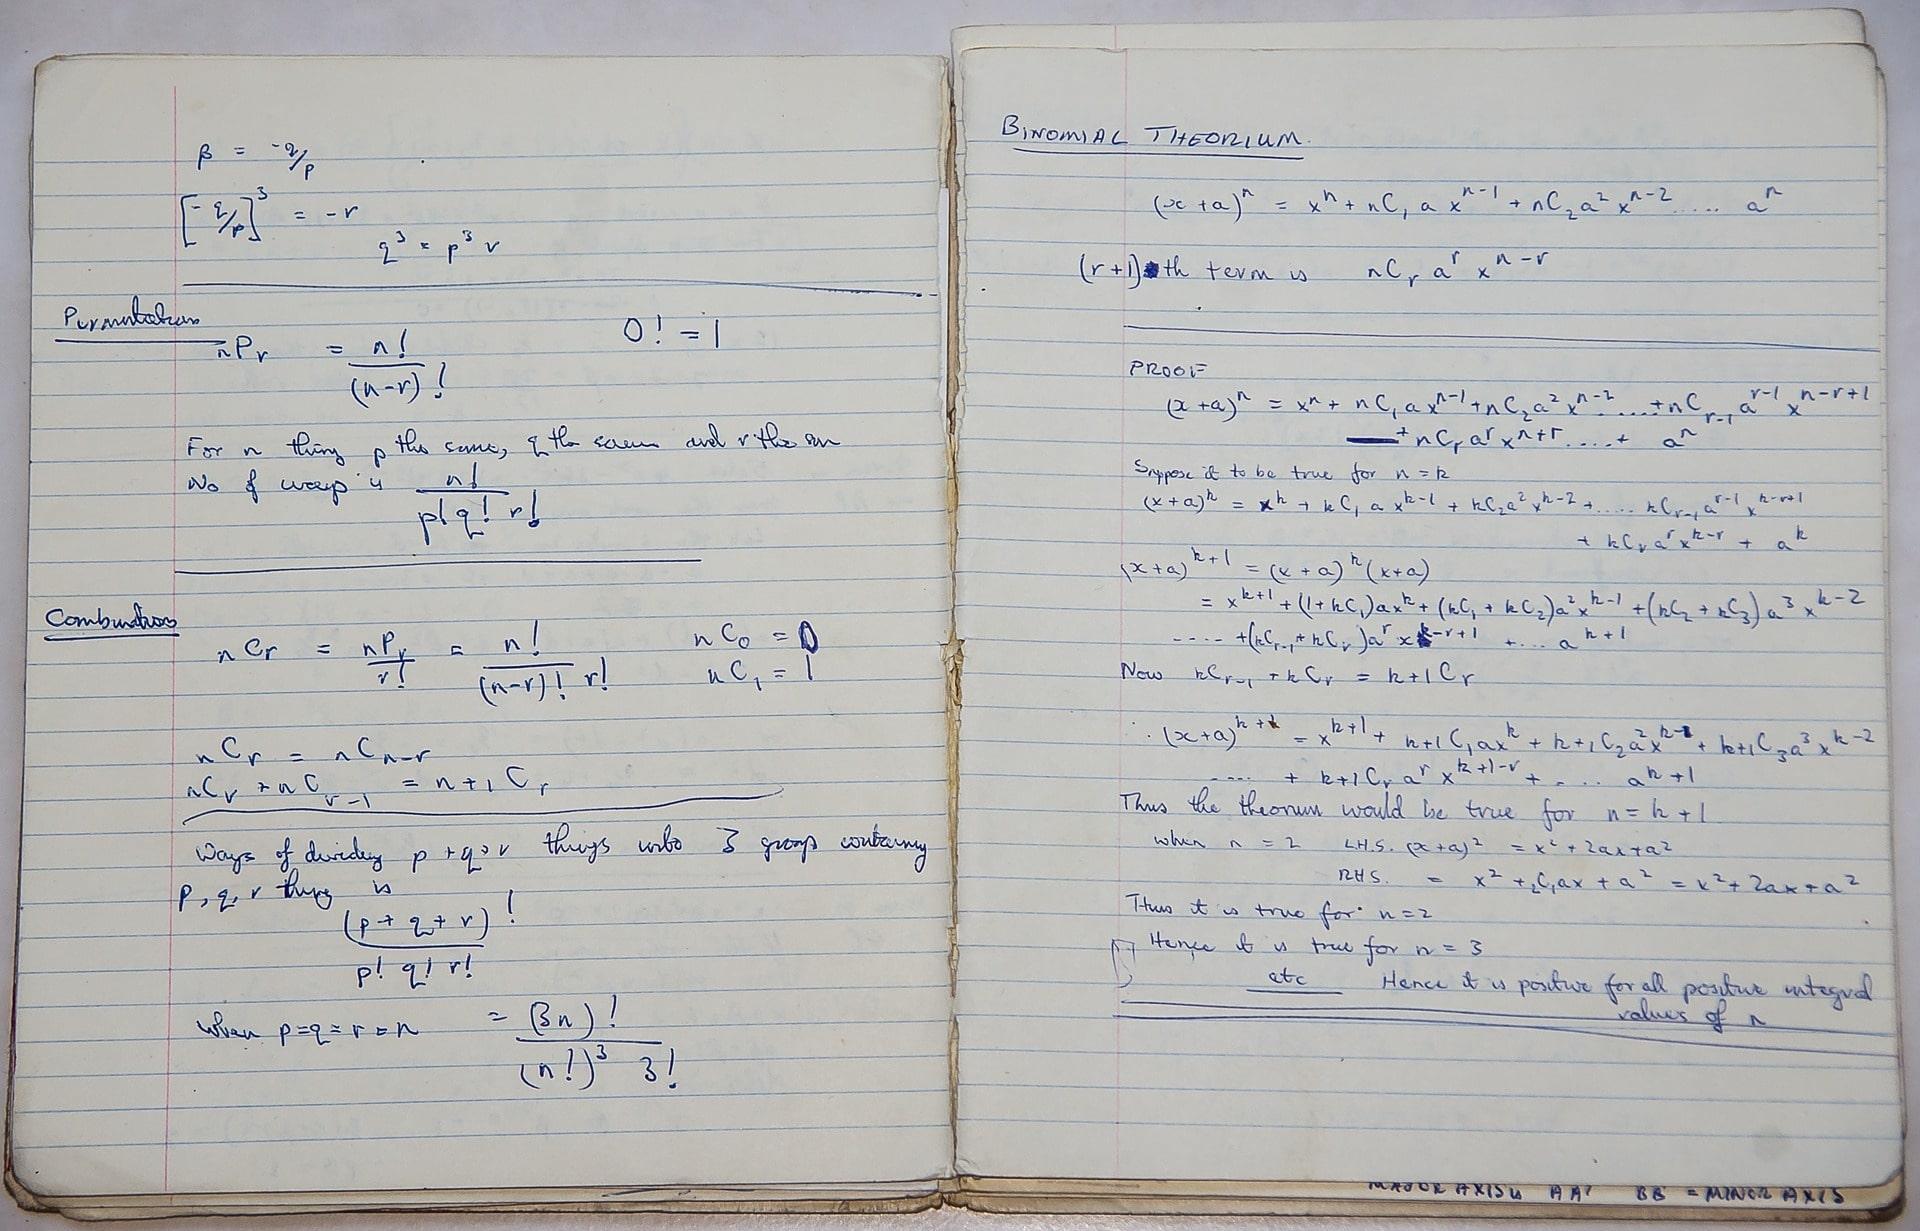 β = -q/p
[-q/p]³ = -r
q³ = p³ r
Permutations
nPr = n!/(n-r)!    0! = 1
For n thing p the same, q the same and r the sm
No of ways is n!/(p! q! r!)
Combinations
nCr = nPr/r! = n!/((n-r)! r!)    nC₀ = 0
nC₁ = 1
nCr = nCn-r
nCr + nCr-1 = n+1Cr
Ways of dividing p+q+r things into 3 group containing
p, q, r thing is
(p+q+r)!/(p! q! r!)
When p=q=r=n = (3n)!/((n!)³ 3!)
BINOMIAL THEORIUM.
(x+a)ⁿ = xⁿ + nC₁ a xⁿ⁻¹ + nC₂ a² xⁿ⁻² ..... aⁿ
(r+1)th term is nCr aʳ xⁿ⁻ʳ
PROOF
(x+a)ⁿ = xⁿ + nC₁ a xⁿ⁻¹ + nC₂ a² xⁿ⁻² ..... + nCr-1 aʳ⁻¹ xⁿ⁻ʳ⁺¹
+ nCr aʳ xⁿ⁺ʳ ..... + aⁿ
Suppose it to be true for n = k
(x+a)ᵏ = xᵏ + kC₁ a xᵏ⁻¹ + kC₂ a² xᵏ⁻² + ..... kCr-1 aʳ⁻¹ xᵏ⁻ʳ⁺¹
+ kCr aʳ xᵏ⁻ʳ + aᵏ
(x+a)ᵏ⁺¹ = (x+a)ᵏ (x+a)
= xᵏ⁺¹ + (1+kC₁)axᵏ + (kC₁ + kC₂)a² xᵏ⁻¹ + (kC₂ + kC₃) a³ xᵏ⁻²
.... + (kCr-1 + kCr) aʳ xᵏ⁻ʳ⁺¹ + ... aᵏ⁺¹
Now kCr-1 + kCr = k+1Cr
∴ (x+a)ᵏ⁺¹ = xᵏ⁺¹ + k+1C₁ axᵏ + k+1C₂ a² xᵏ⁻¹ + k+1C₃ a³ xᵏ⁻²
.... + k+1Cr aʳ xᵏ⁺¹⁻ʳ + .... aᵏ⁺¹
Thus the theorum would be true for n = k+1
when n = 2 L.H.S. (x+a)² = x² + 2ax + a²
RHS. = x² + ₂C₁ax + a² = x² + 2ax + a²
Thus it is true for n=2
Hence it is true for n = 3
etc Hence it is positive for all positive integral
values of n
MAJOR AXIS is AA' BB' = MINOR AXIS